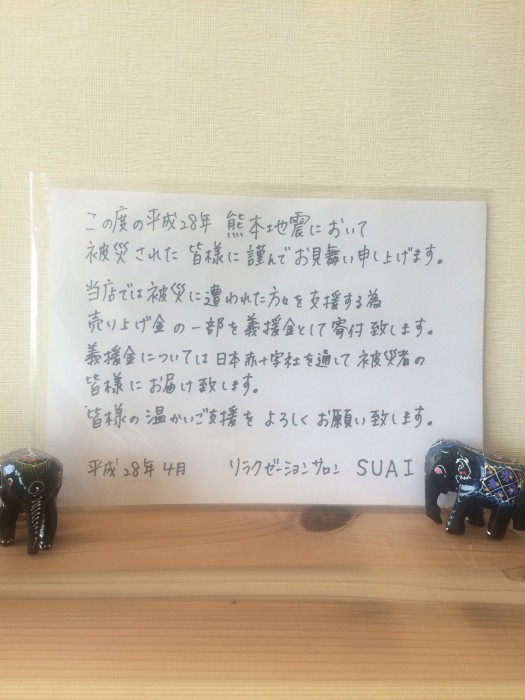 この度の平成28年 熊本地震において
被災された皆様に謹んでお見舞い申し上げます。
当店では被災に遭われた方々を支援する為
売り上げ金の一部を義援金として寄付致します。
義援金については日本赤十字社を通じて被災者の
皆様にお届け致します。
皆様の温かいご支援をよろしくお願い致します。
平成28年4月 リラクゼーションサロン SUAI